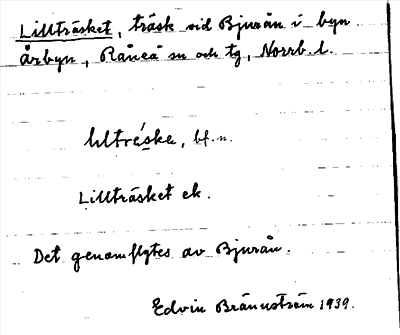 Lillträsket, träsk vid Bjurån i byn
Årbyn, Råneå sn och tg, Norrb. l.
lıltrǽska, bf. n.
Lillträsket ek.
Det genomflytes av Bjurån.
Edvin Brännström 1939.